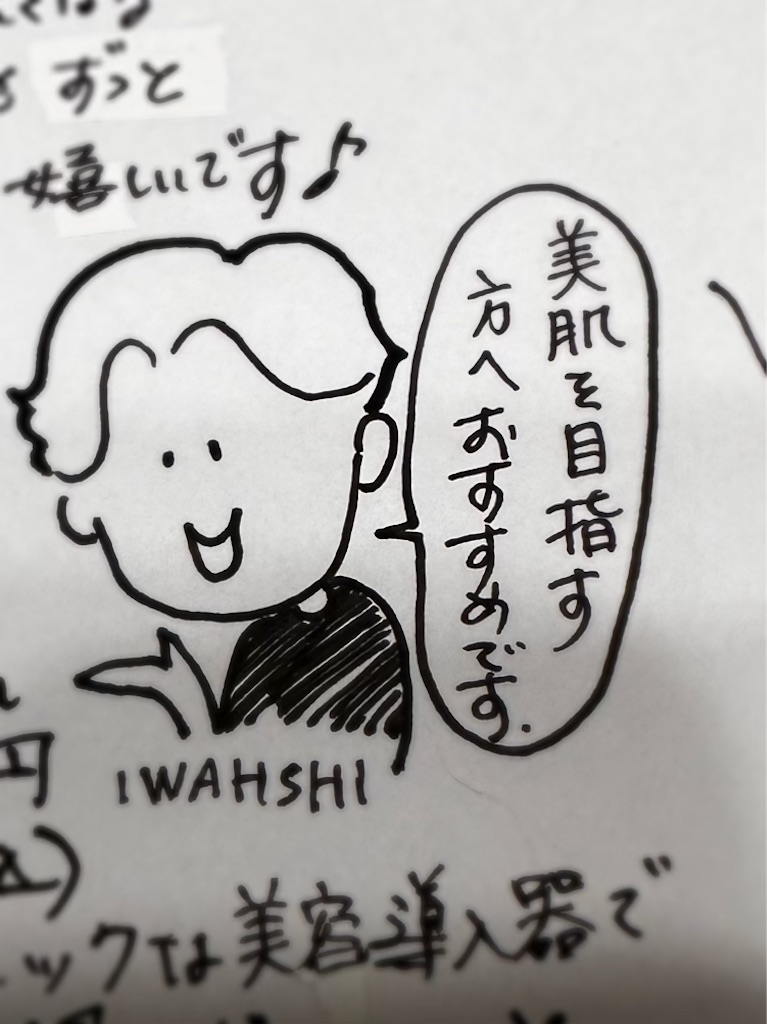 ずっと
嬉しいです♪
美肌を目指す
方へおすすめです.
IWAHSHI
円
ックな美容導入器で